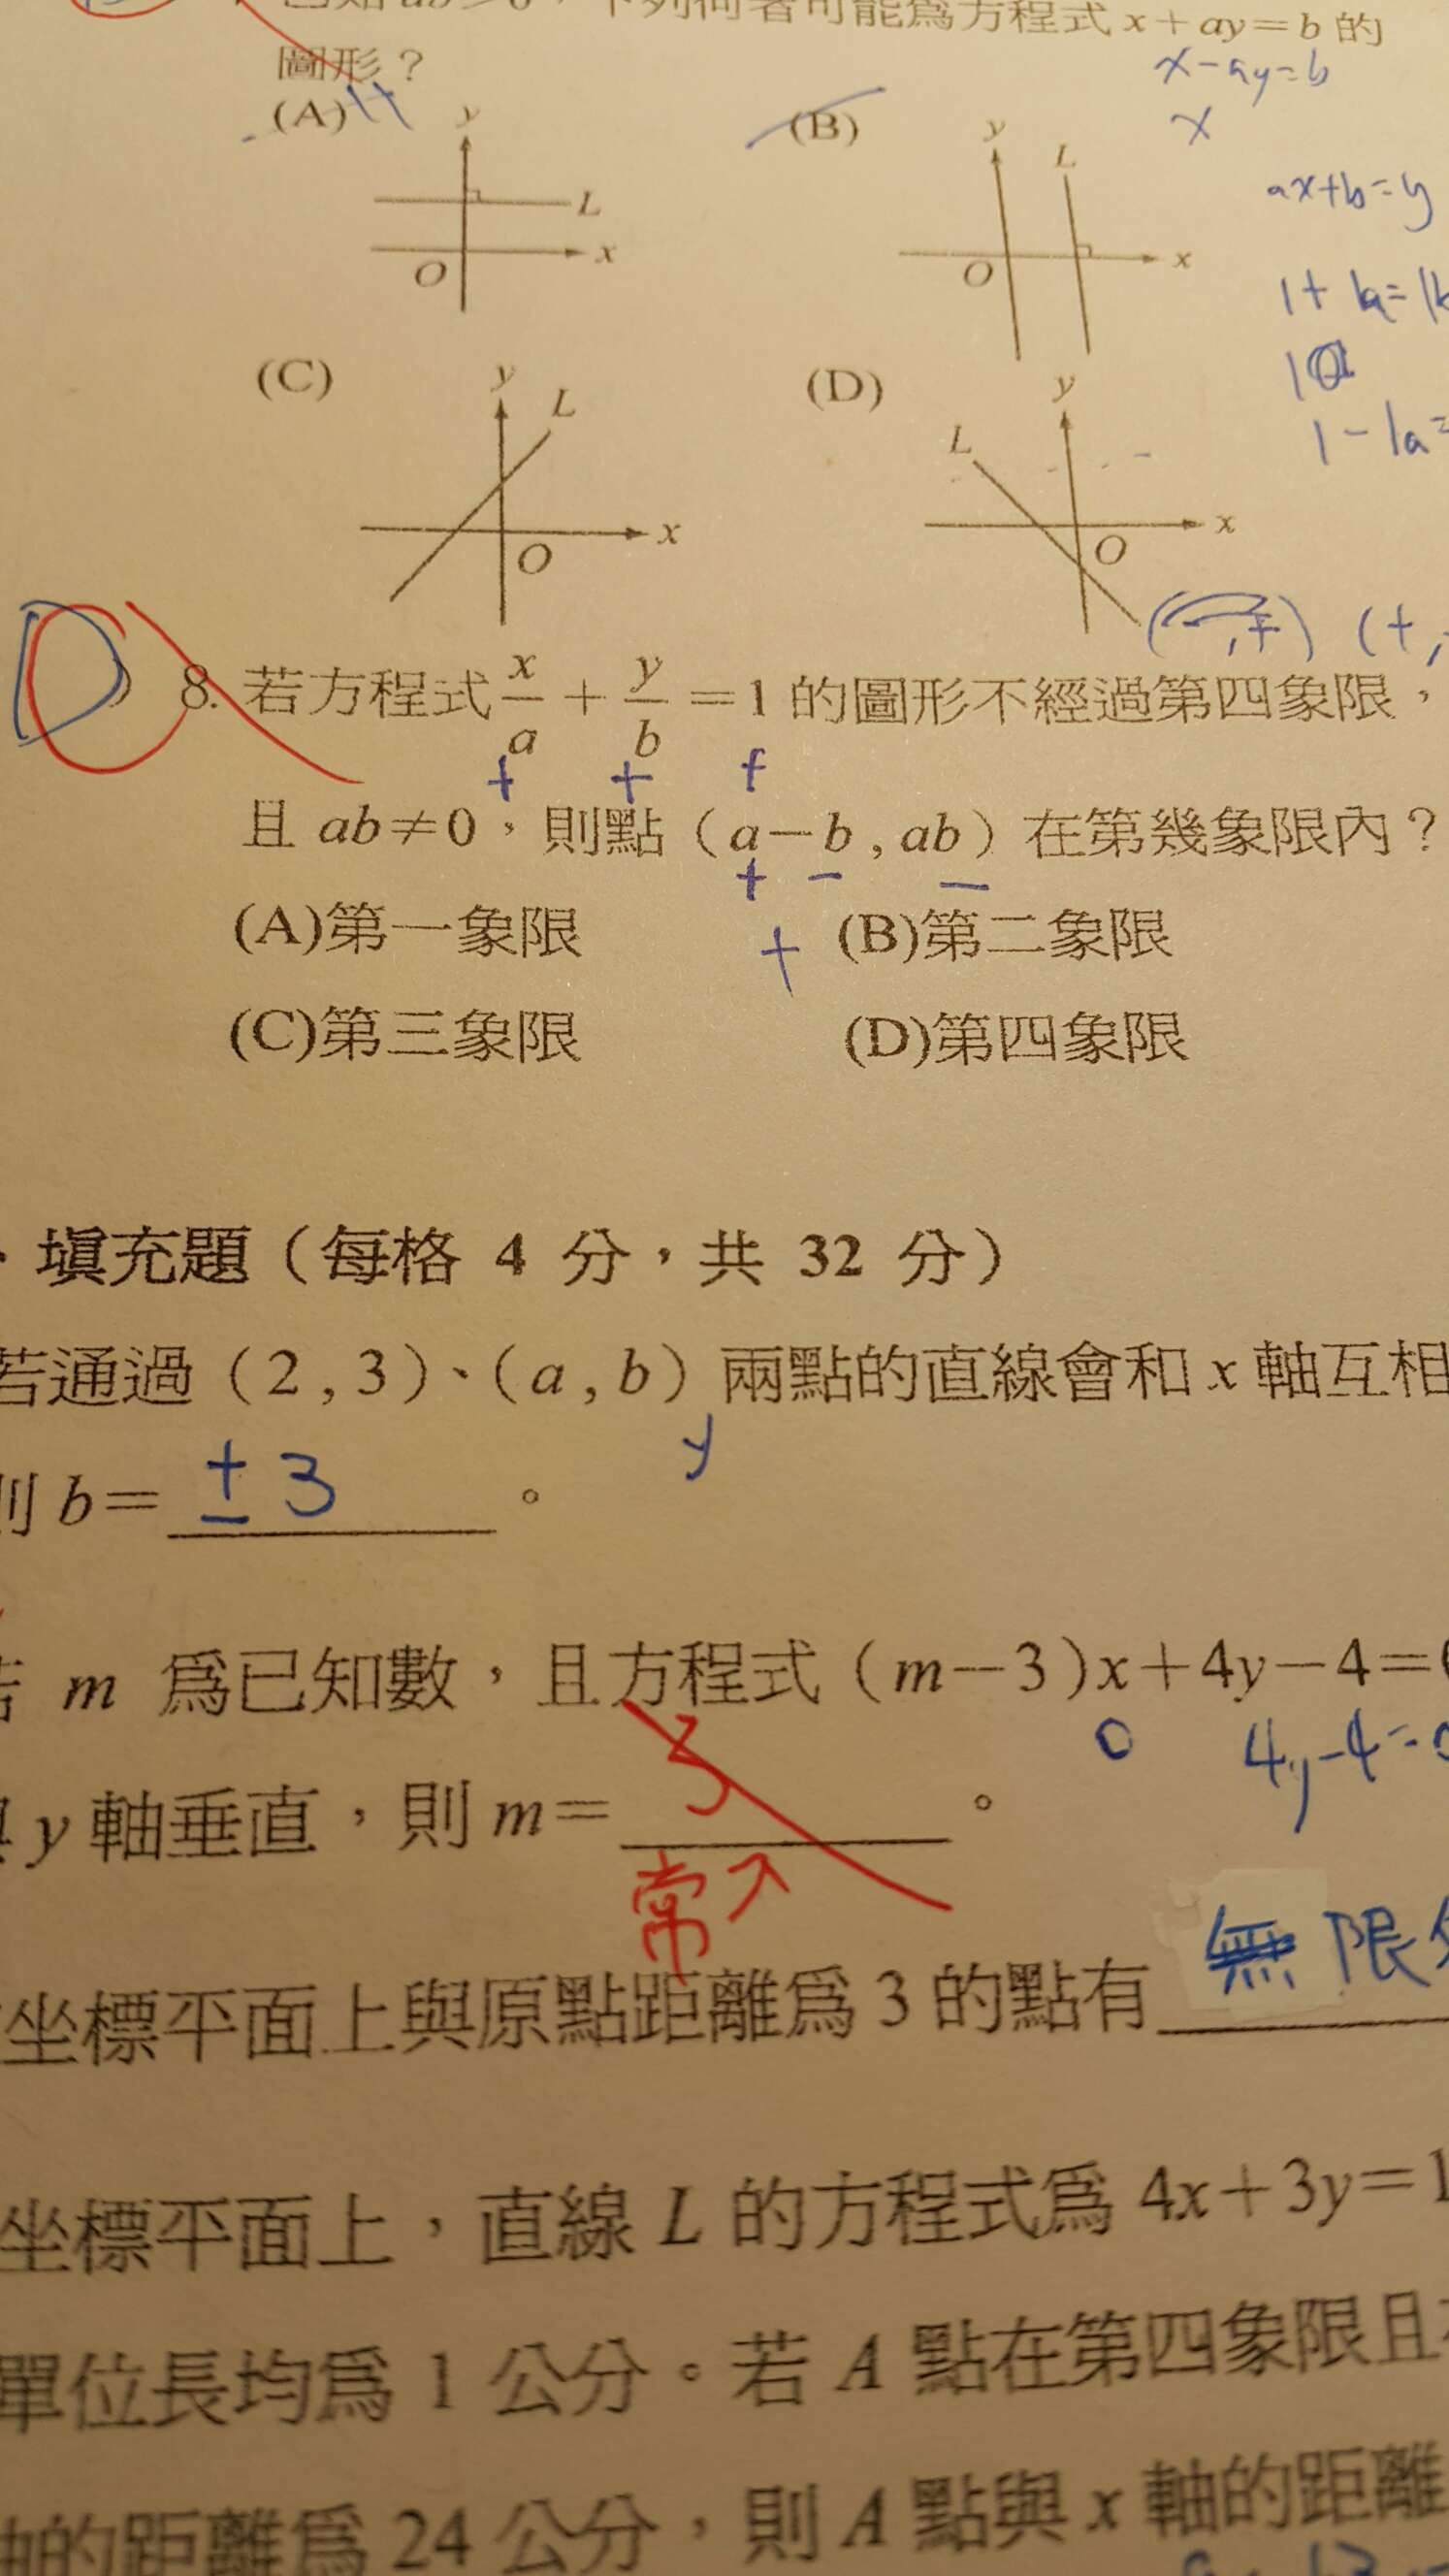 下列何者可能為方程式 x+ay=b 的
圖形？
x-ay=b
x
(A)
y
L
x
O
(B)
y
L
x
O
ax+b=y
(C)
y
L
x
O
(D)
y
L
x
O
1-1a=
8. 若方程式 x/a + y/b =1 的圖形不經過第四象限，
+ + +
且 ab≠0，則點（a-b , ab）在第幾象限內？
+ - -
(A)第一象限
+
(B)第二象限
(C)第三象限
(D)第四象限
、填充題（每格 4 分，共 32 分）
若通過（2 , 3）、（a , b）兩點的直線會和 x 軸互相
y
則 b= ±3 。
若 m 為已知數，且方程式（m-3）x+4y-4=0
0 4y-4=0
與 y 軸垂直，則 m= 3 。
坐標平面上與原點距離為 3 的點有 無限
坐標平面上，直線 L 的方程式為 4x+3y=1
單位長均為 1 公分。若 A 點在第四象限且
軸的距離為 24 公分，則 A 點與 x 軸的距離